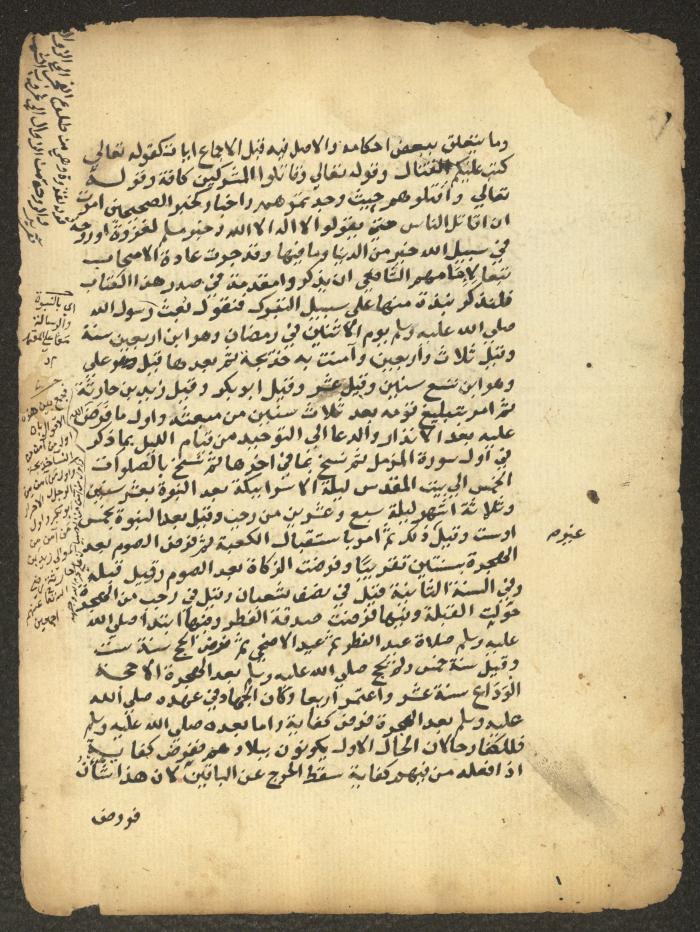 وما يتعلق ببعض احكامه والاصل فيه قبل الاجماع ايات كقوله تعالي
كتب عليكم القتال وقوله تعالي وقاتلوا المشركين كافة وقوله
تعالي واقتلوهم حيث وجدتموهم واخبار كخبر الصحيحين امرت
ان اقاتل الناس حتي يقولوا لا اله الا الله وخبر مسلم لغزوة او روحة
في سبيل الله خير من الدنيا وما فيها وقد جرت عادة الاصحاب
تبعا لامامهم الشافعي ان يذكروا مقدمة في صدر هذا الكتاب
فلنذكر نبذة منها علي سبيل التبرك فنقول بعث رسول الله
صلي الله عليه وسلم يوم الاثنين في رمضان وهو ابن اربعين سنة
وقيل ثلاث واربعين وآمنت به خديجة ثم بعدها قيل علي
وهو ابن تسع سنين وقيل عشر وقيل ابو بكر وقيل زيد بن حارثة
ثم امر بتبليغ قومه بعد ثلاث سنين من مبعثه واول ما فرض
عليه بعد الانذار والدعا الي التوحيد من قيام الليل بما ذكر
في اول سورة المزمل ثم نسخ بما في اخرها ثم نسخ بالصلوات
الخمس الي بيت المقدس ليلة الاسرا بمكة بعد النبوة بعشر سنين
وثلاثة اشهر ليلة سبع وعشرين من رجب وقيل بعد النبوة بخمس
او ست وقيل ذلك ثم امر باستقبال الكعبة ثم فرض الصوم بعد
الهجرة بسنتين تقريبا وفرضت الزكاة بعد الصوم وقيل قبله
وفي السنة الثانية قيل في نصف شعبان وقيل في رجب من الهجرة
حولت القبلة وفيها فرضت صدقة الفطر وفيها ابتدا صلي الله
عليه وسلم صلاة عيد الفطر ثم عيد الاضحي ثم فرض الحج سنة ست
وقيل سنة خمس ولم يحج صلي الله عليه وسلم بعد الهجرة الا حجة
الوداع سنة عشر واعتمر اربعا وكان الجهاد في عهده صلي الله
عليه وسلم بعد الهجرة فرض كفاية واما بعده صلي الله عليه وسلم
فللكفار حالان الحال الاول يكونون ببلادهم ففرض كفاية
اذا فعله من فيهم كفاية سقط الحرج عن الباقين لان هذا شأن
فروض
اي بالنبوة
والرسالة